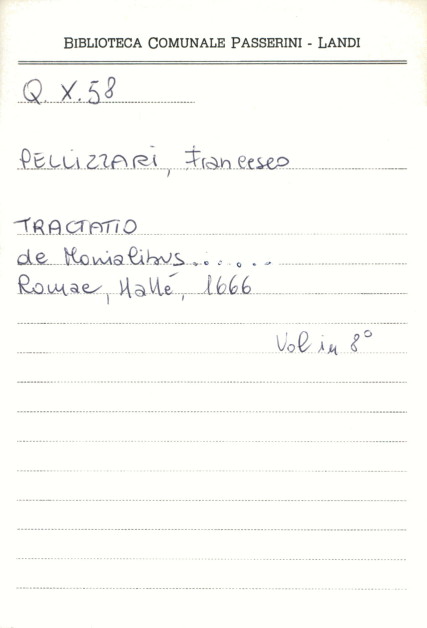 BIBLIOTECA COMUNALE PASSERINI - LANDI
Q. X. 58
PELLIZZARI, Francesco
TRACTATIO
de Monialibus......
Romae, Hallé, 1666
Vol in 8°